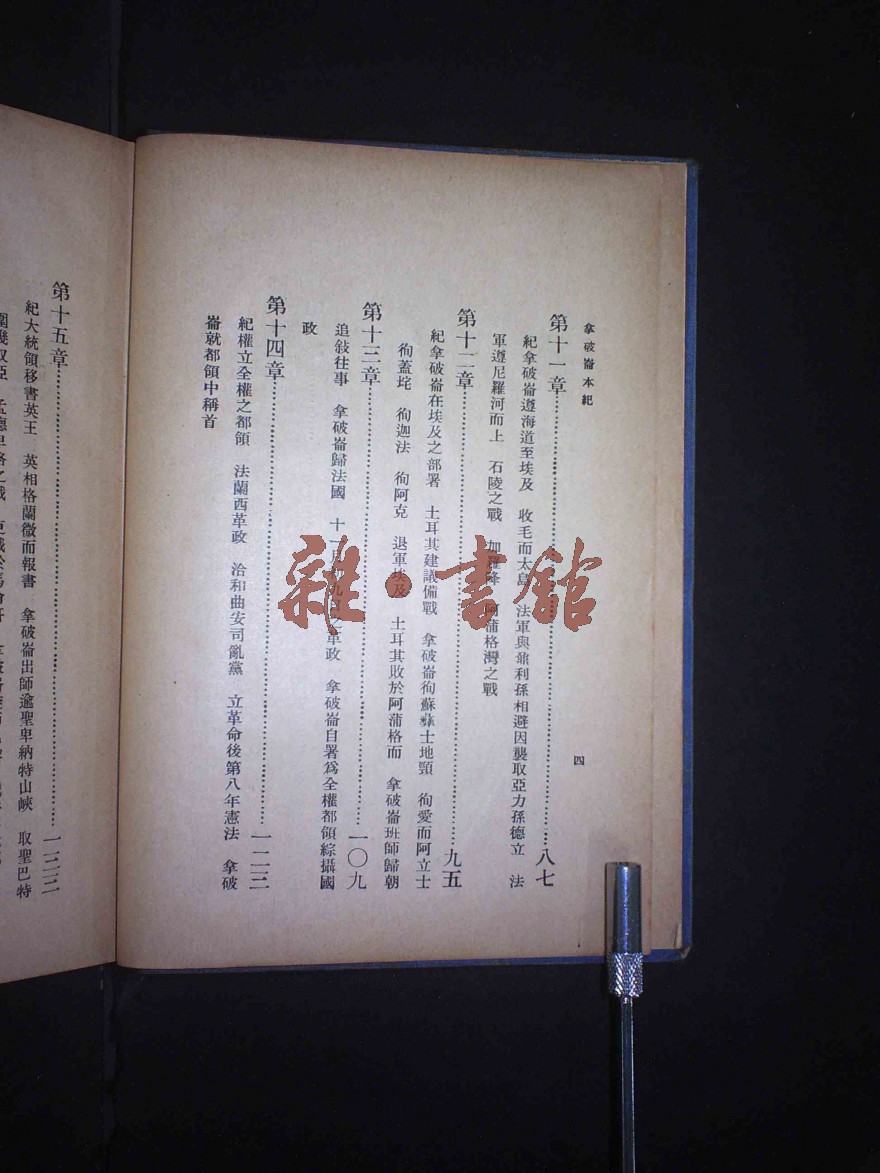 拿破崙本紀
四
第十一章……八七
紀拿破崙遵海道至埃及　收毛而太島　法軍與鼐利孫相避因襲取亞力孫德立　法
軍遵尼羅河而上　石陵之戰　阿蒲格灣之戰
第十二章……九五
紀拿破崙在埃及之部署　土耳其建議備戰　拿破崙徇蘇彝士地頸　徇愛而阿立士
徇蓋垞　徇迦法　徇阿克　退軍埃及　土耳其敗於阿蒲格而　拿破崙班師歸朝
第十三章……一〇九
追敍往事　拿破崙歸法國　十一月初九日之革政　拿破崙自署爲全權都領綜攝國
政
第十四章……一二三
紀權立全權之都領　法蘭西革政　洽和曲安司亂黨　立革命後第八年憲法　拿破
崙就都領中稱首
第十五章……一三三
紀大統領移書英王　英相格蘭徵而報書　拿破崙出師逾聖卑納特山峽　取聖巴特
雜·書館